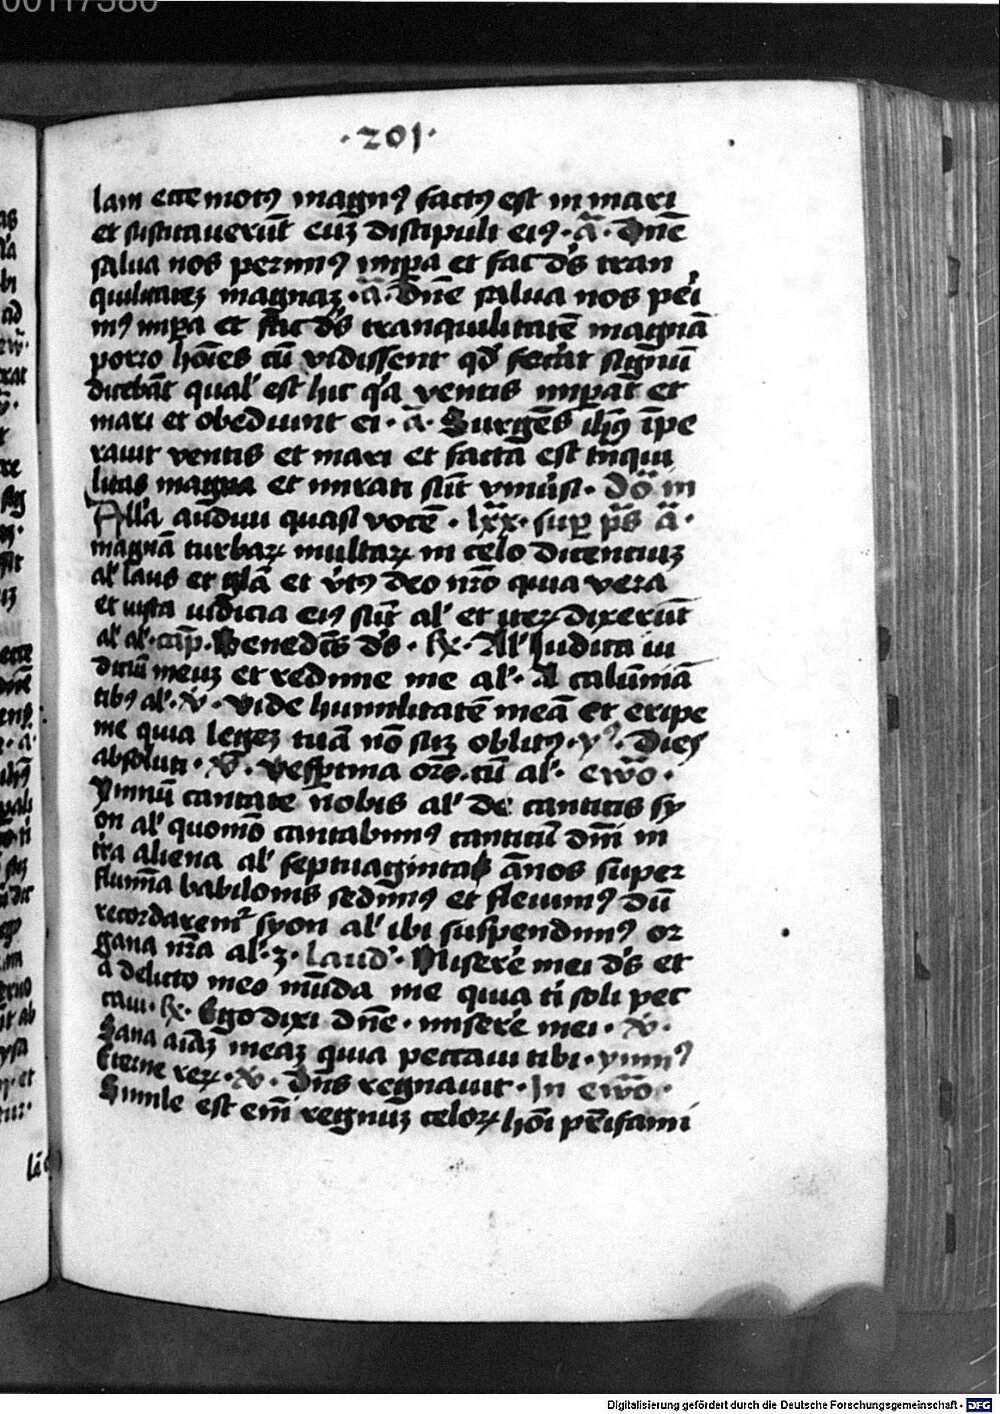 00117380
·201·
lam ecce motꝰ magnꝰ factꝰ est in mari
et suscitauerūt euꝫ discipuli eiꝰ · ā · Dnē
salua nos perimꝰ impa et fac dś tran
quilitateꝫ magnaꝫ · ā · Dnē salua nos pei
mꝰ impa et fac dś tranquilitatē magnā
porro hoīes cū vidissent qđ fecat signū
dicebāt qual' est hic q'a ventis impat et
mari et obediunt ei · ā · Surgēs ihꝰ īpe
rauit ventis et mari et facta est tnqui
litas magna et mirati sūt vniūsi · Dō in
All'a audiui quasi vocē · lxx · sup ps ā ·
magnā turbaꝝ multaꝝ in celo dicentiuꝫ
al' laus et glā et v̄tꝰ deo nrō quia vera
et iusta iudicia eiꝰ sūt al' et iteꝝ dixerūt
al' al' · cap̄ · Benedcs dś · ℟ · Al' Judica iu
diciū meuꝫ et redime me al' · A calūniā
tibꝰ al' · ℣ · Vide humilitatē meā et eripe
me quia legeꝫ tuā nō sūꝫ oblitꝰ · yꝰ · Dies
absoluti · ℣ · Vesptina orō · cū al' · ewō ·
Ymnū cantate nobis al' de canticis sy
on al' quomō cantabimꝰ canticū dnī in
tra aliena al' septuaginta annos super
flumīa babilonis sedimꝰ et fleuimꝰ dū
recordaremr syon al' ibi suspendimꝰ or
gana nra al' · ꝫ · laud' · Miserē mei dś et
a delicto meo mūda me quia ti soli pec
caui · ℟ · Ego dixi dnē · miserē mei · ℣ ·
Sana aiaꝫ meaꝫ quia peccaui tibi · ymnꝰ
Eterne reꝝ · ℣ · Dns regnauit · In ewō ·
Simile est enī regnuꝫ celoꝝ hoī pr̄isfami
Digitalisierung gefördert durch die Deutsche Forschungsgemeinschaft - DFG